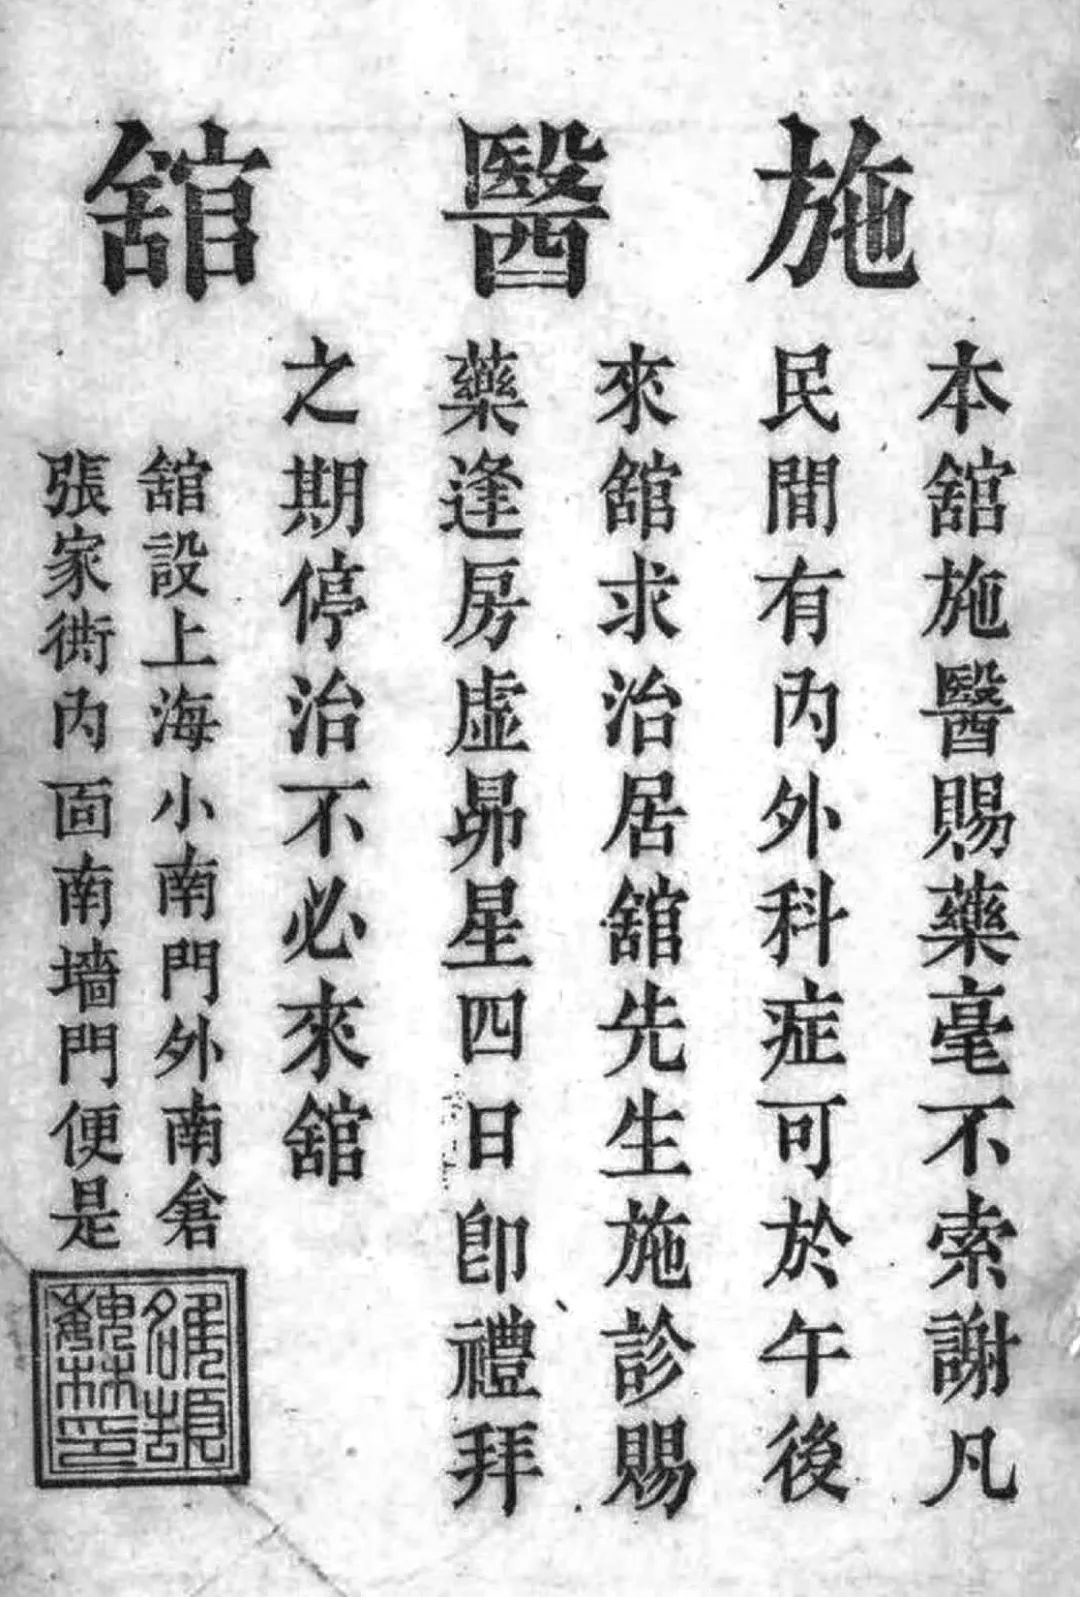 施醫舘
本舘施醫賜藥毫不索謝凡
民間有内外科症可於午後
來舘求治居舘先生施診賜
藥逢房虛昴星四日卽禮拜
之期停治不必來舘
舘設上海小南門外南倉
張家衖内面南墻門便是